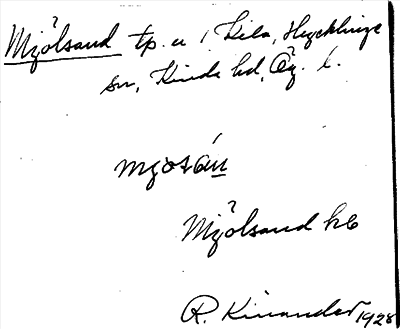 Mjölsand tp. u / Kila, Hycklinge
sn, Kinda hd, Ög. l.
mjosán
Mjölsand hb
R. Kinander 1928